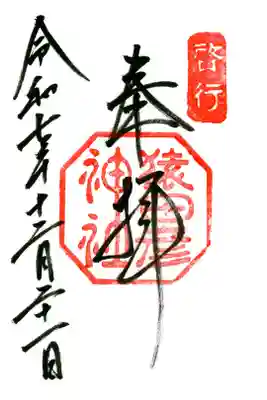 啓行
奉拝
猿田彦
神社
令和七年十二月二十一日